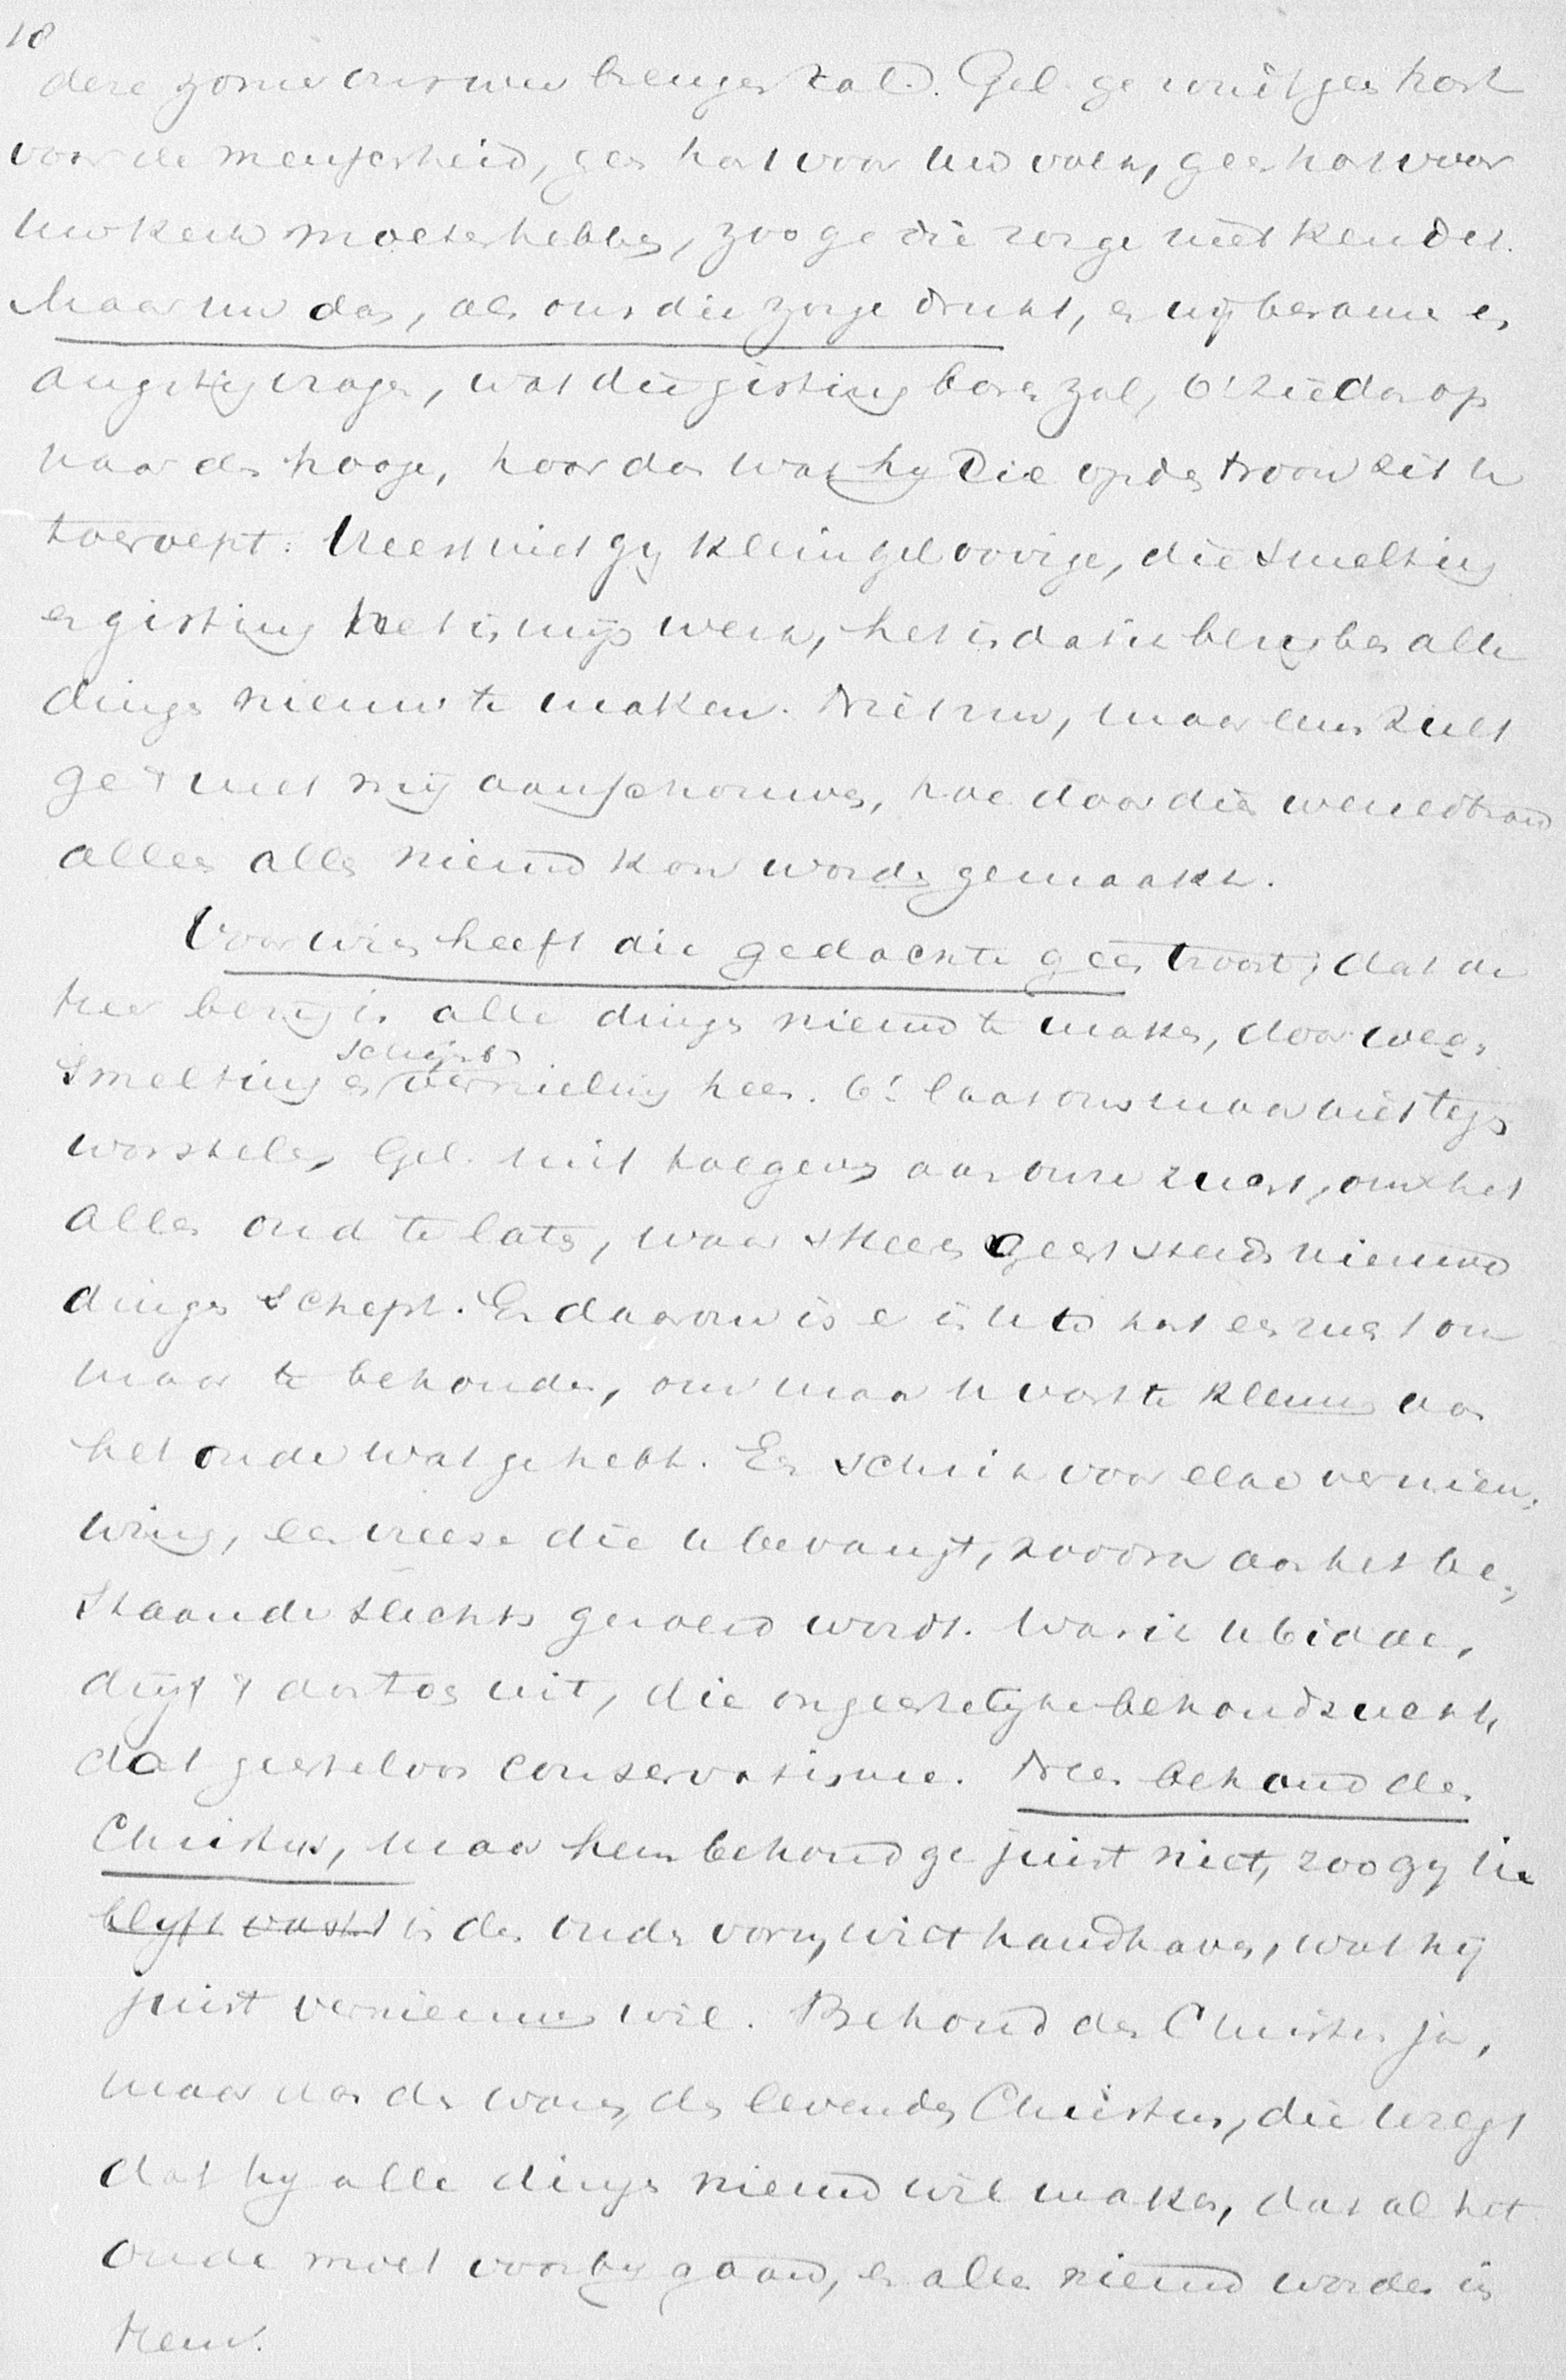 18
deze zomer ons nu brengen zal. Gel. ge zoudt geen hart
voor de menscheid, geen hart voor uw volk, geen hart voor
uw kerk moeten hebben, zoo ge die zorge niet kendet.
Maar nu dan, als ons die zorge drukt, en wij
angstig vragen, wat die gisting baren zal, o! zie dan op
naar den hooge, hoor dan wat hy Die op den troon zit u
toeroept: Vreest niet gij kleingeloovige, die smelting
en gisting het is mijn werk, het is dat ik bezig ben alle
dingen nieuw te maken. Niet nu, maar eens zult
ge 't met mij aanschouwen, hoe door dien wereldbrand
alles alles nieuw kon worden gemaakt.
Voor wien heeft die gedachte geen troost, dat de
Heer bezig is alle dingen nieuw te maken, door weg-
schijnb
smelting en vernieling heen. O! laat ons maar niet tegen
worstelen, Gel. niet toegeven aan onze zucht, om het
alles oud te laten, waar 's Heeren geest steeds nieuwe
dingen schept. En daarom is er in uw hart een zucht om
maar te behouden, om maar u vast te klemmen aan
het oude wat ge hebt. En schrik voor elke vernieu-
wing, een vreese die u bevangt, zoodra aan het be-
staande slechts geroerd wordt. Wat ik u bidde,
drijft 't dan toch uit, die ongeestelijke behoudzucht,
dat geesteloos conservatisme. Neen behoud den
Christus, maar hem behoud ge juist niet, zoo gy hier
blyft vast in den ouden vorm, wilt handhaven, wat hij
juist vernieuwen wil. Behoud den Christus ja,
maar dan den waren, den levenden Christus, die u zegt
dat hy alle dingen nieuw wil maken, dat al het
oude moet voorby gaan, en alles nieuw worden in
Hem.